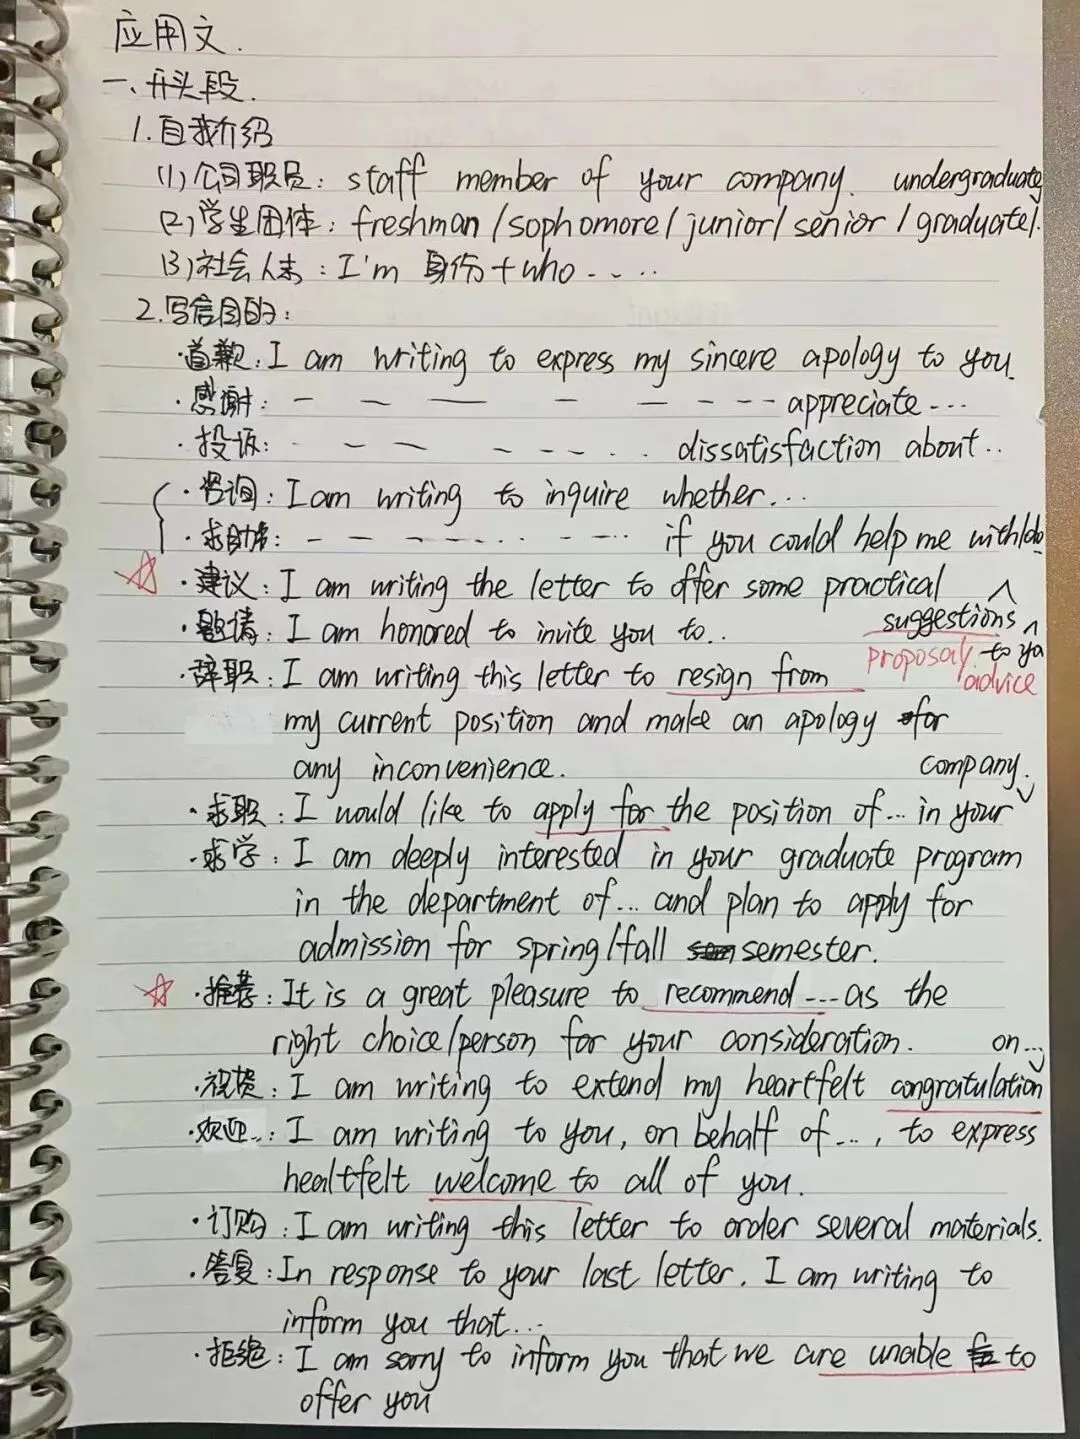 应用文.
一、开头段.
1.自我介绍
(1)公司职员: staff member of your company. undergraduate
(2)学生团体: freshman/sophomore/junior/senior/graduate/.
(3)社会人士: I'm 身份+who....
2.写信目的:
·道歉: I am writing to express my sincere apology to you.
·感谢: — — — — — - - - - appreciate...
·投诉: - — — - - - - . . dissatisfaction about..
·咨询: I am writing to inquire whether...
·求助: - — — - - - . . - - - . if you could help me with/do
·建议: I am writing the letter to offer some practical
suggestions
·邀请: I am honored to invite you to..
proposal/ to you
advice
·辞职: I am writing this letter to resign from
my current position and make an apology for
any inconvenience.
company.
·求职: I would like to apply for the position of... in your
·求学: I am deeply interested in your graduate program
in the department of... and plan to apply for
admission for spring/fall semester.
·推荐: It is a great pleasure to recommend --- as the
right choice/person for your consideration.
on...
·祝贺: I am writing to extend my heartfelt congratulation
·欢迎..: I am writing to you, on behalf of..., to express
healtfelt welcome to all of you.
·订购: I am writing this letter to order several materials.
·答复: In response to your last letter. I am writing to
inform you that...
·拒绝: I am sorry to inform you that we are unable to
offer you